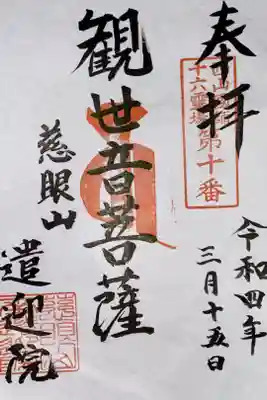 奉拝
十六霊場
第十番
令和四年
三月十五日
観世音菩薩
慈眼山
遣迎院